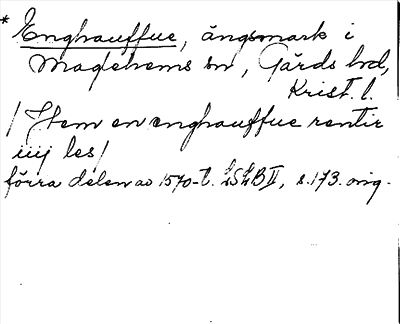 * Enghauffue, ängsmark i
Maglehems sn, Gärds hd,
Krist. l.
/ Item en enghauffue rentir
iiij les /
förra delen av 1570-t. LSLB II, s. 173. orig.